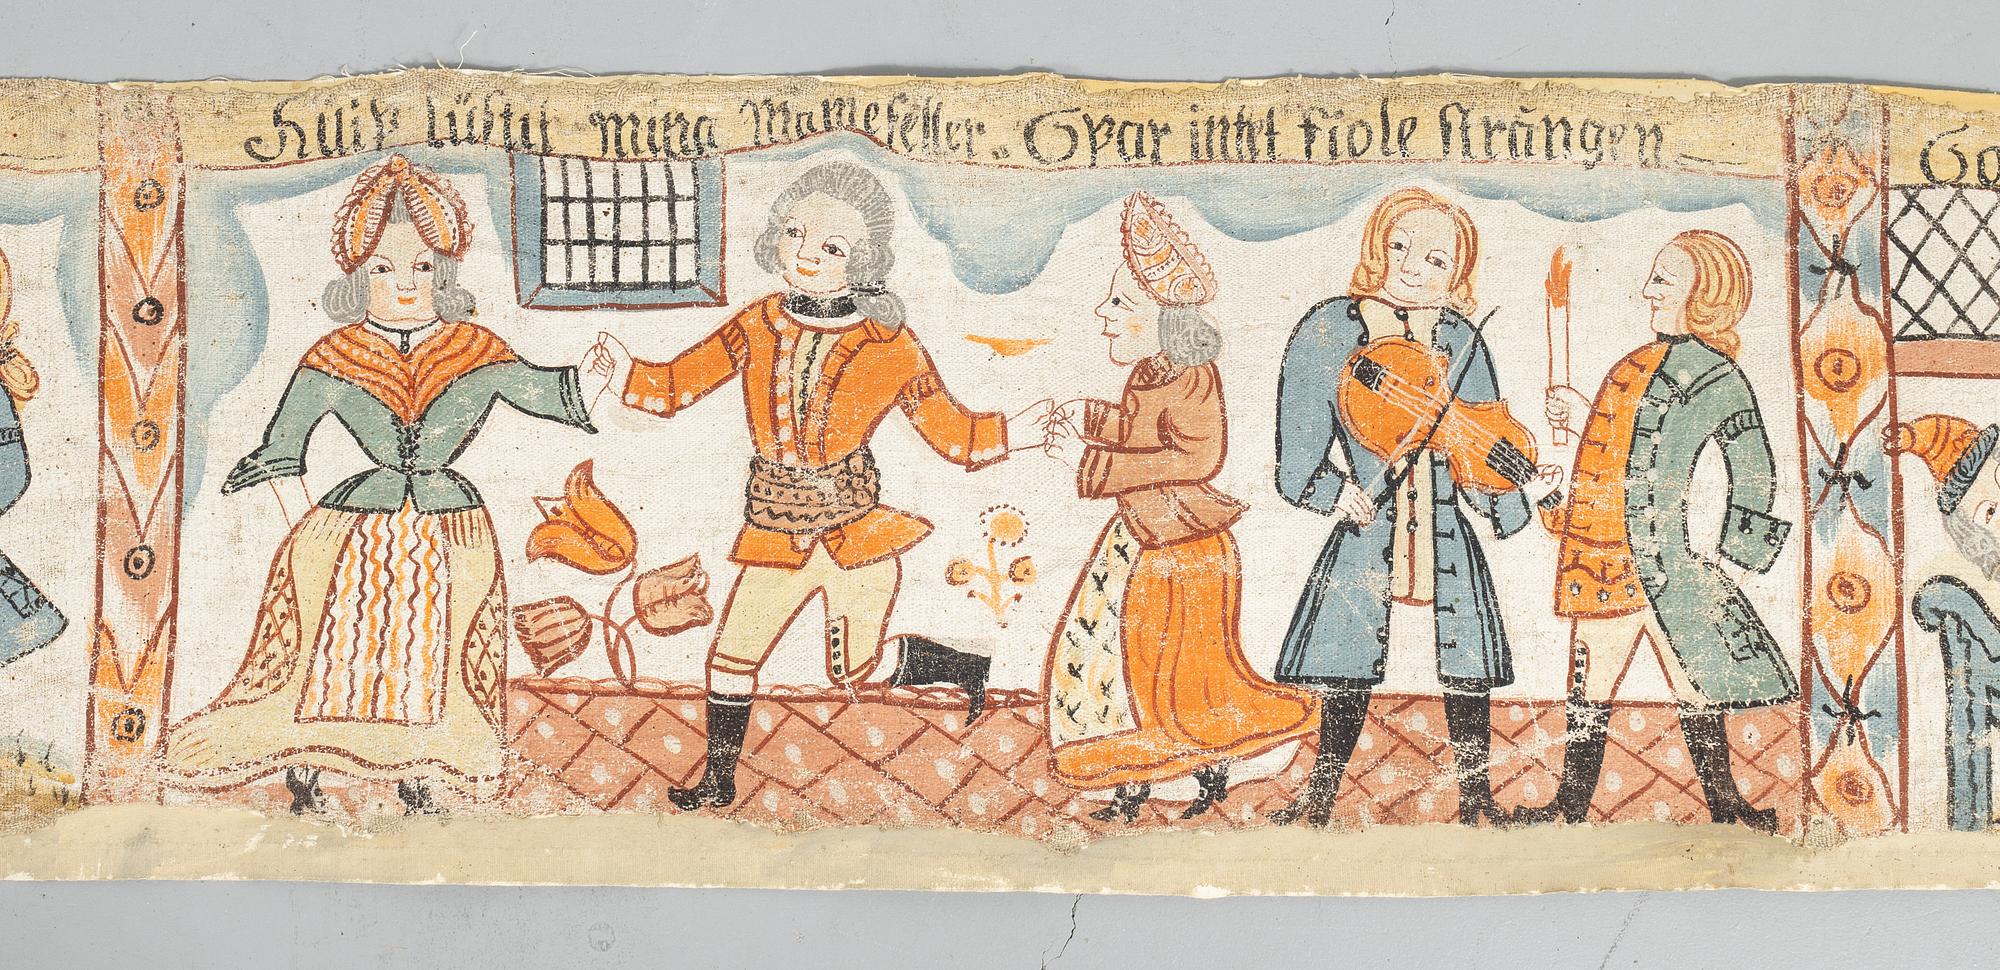 lüstit mina Mameseller.. Spar intet fiole strängen
Go